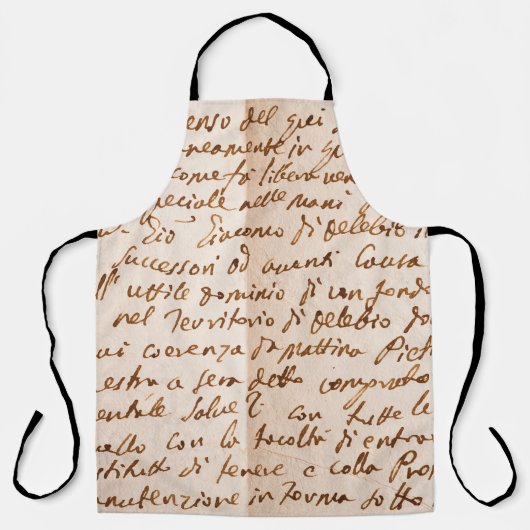 enso del qui
neamente in qu
come fà libera ven
speciale nelle mani
Giò Giacomo di Delebio
Successori od aventi Causa
ll' uttile dominio di un fondo
nel Territorio di Delebio do
coerenza da mattina
estra a sera detto comprato
entále Salve con tutte le
ello con la facoltà di entrar
stituti di tenere e colla Pro
nutenzione in forma sotto